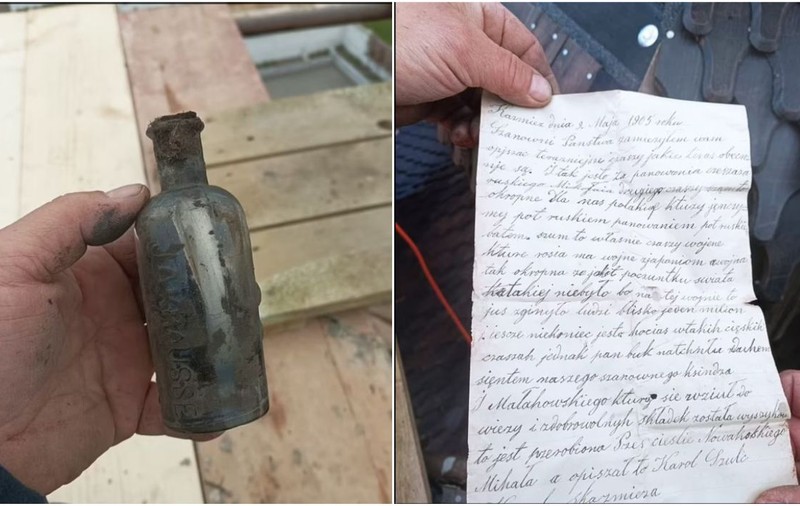 Kazmierz dnia 2. Maja 1905 roku
Szanowni Państwo zamierzłem wam
opisac teraźniejsze czasy jakie teraz obecne
sje są. I tak jest to za panowania czesarza
ruskiego Mikołaja drugiego czasy
okropne dla nas polakuf kturzy jenczy
my pot ruskiem panowaniem pot ruskim
batem. szum to właśnie czasy wojene
kture rosia ma wojne zjaponiom a wojna
tak okropna ze jak pot poczuntku swiata
to takiej niebyło bo na tej wojnie to
jus zgineło ludzi blisko jeden milion
i jescze niekoniec jest a hocias wtakih cięskih
czassah jednak pan buk natchnłu Duchem
sięntem naszego szanownego ksindza
J Małahowskiego ktury sie wziuł do
wiezy i zdobrowolnyh składek została
to jest przerobiona Przes cieslie Nowakoskiego
Mihała a opiszał to Karol Szulc
skazmierza